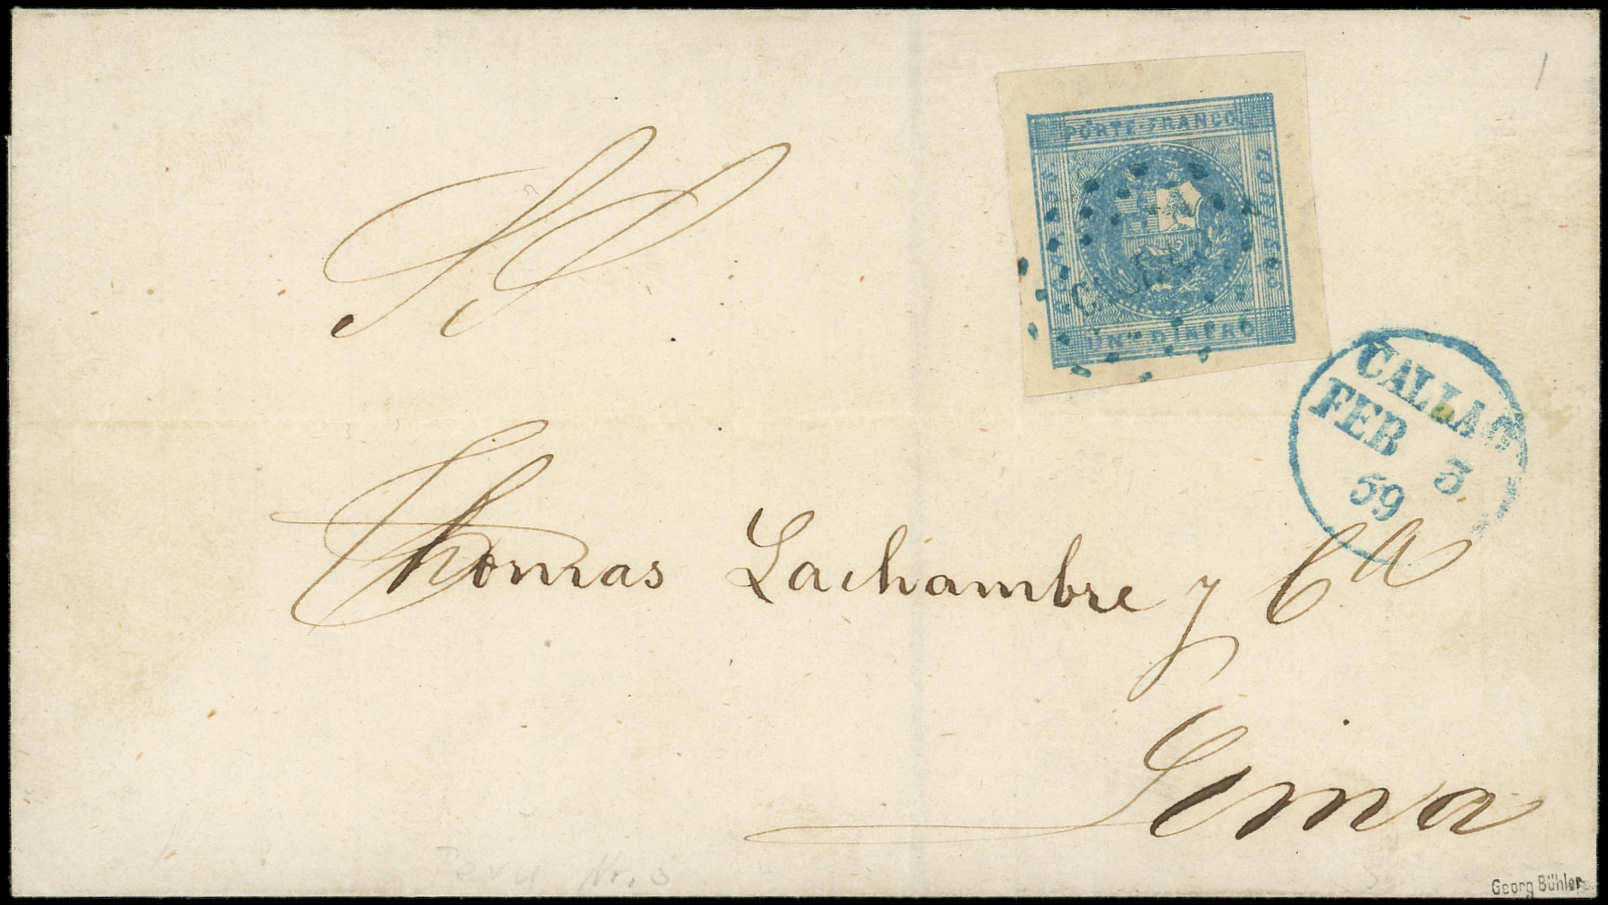 PORTE FRANCO
CORREOS
UN DINERO
CALLAO
FEB 3
59
SS
Thomas Lachambre y Ca
Lima
Peru Nr. 5
Georg Bühler